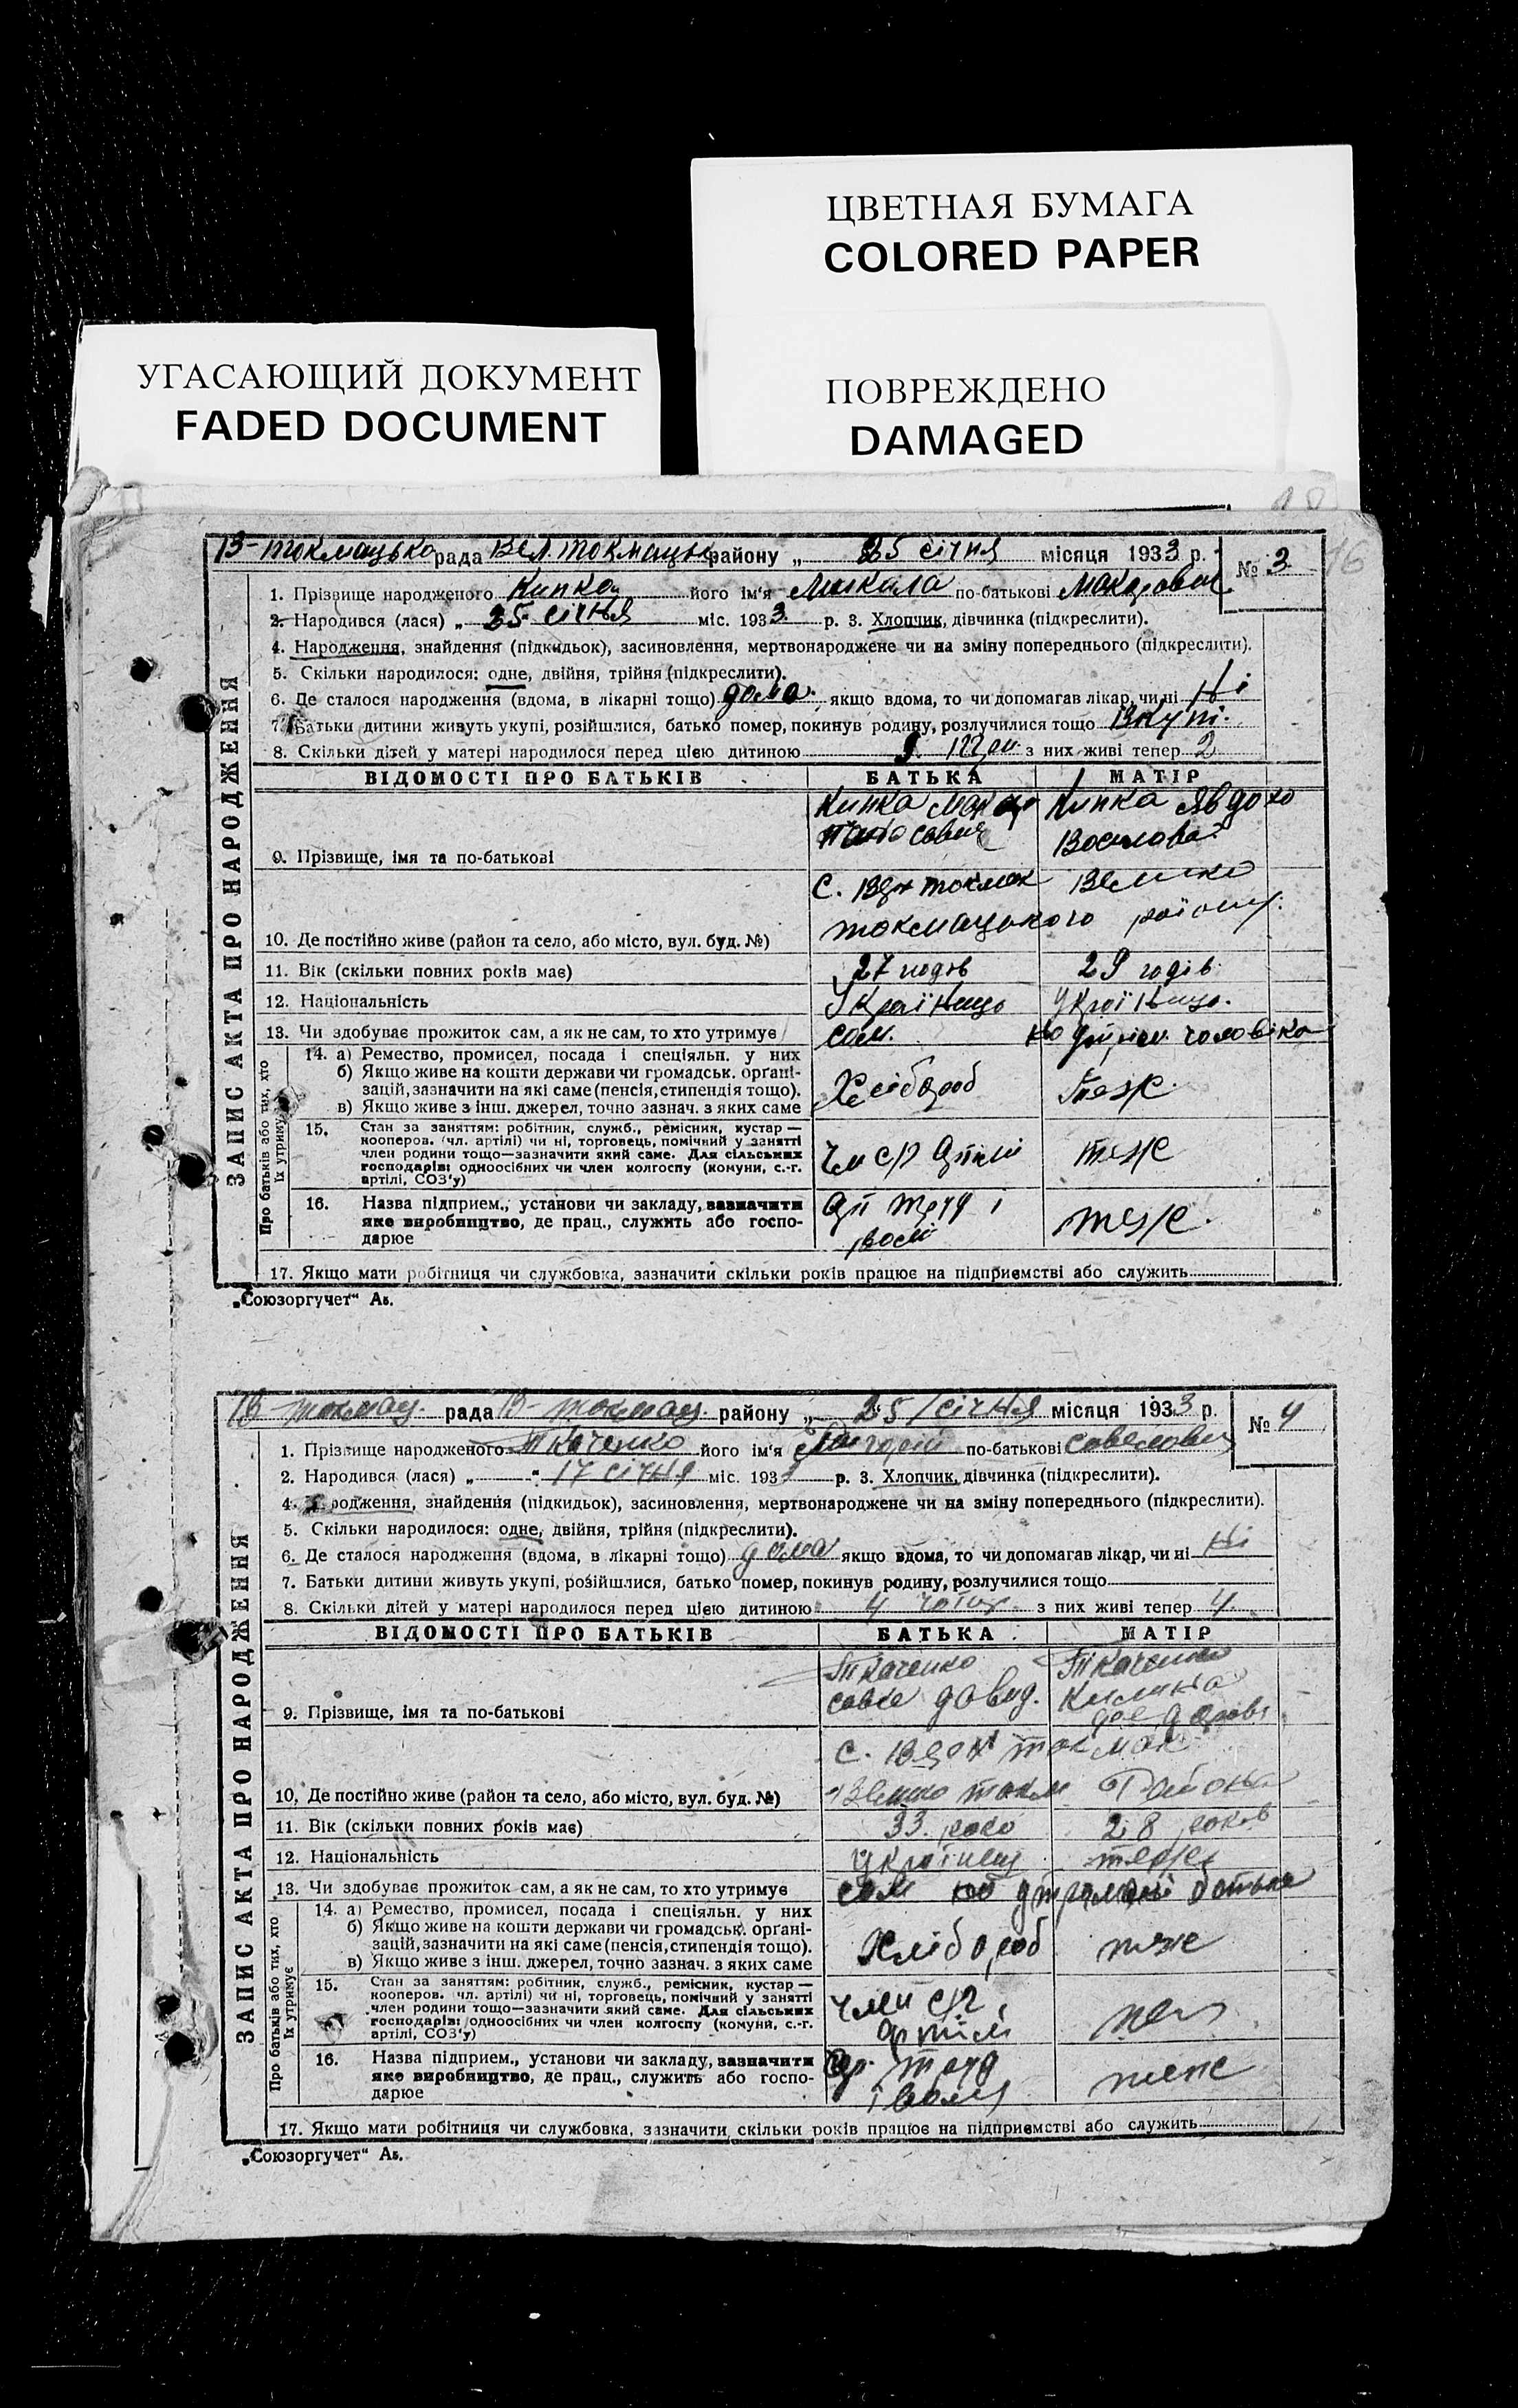 ЦВЕТНАЯ БУМАГА
COLORED PAPER
УГАСАЮЩИЙ ДОКУМЕНТ
FADED DOCUMENT
ПОВРЕЖДЕНО
DAMAGED
16
В-токмацько рада Вел. токмацьк району „ 25 січня місяця 1933 р. № 3
ЗАПИС АКТА ПРО НАРОДЖЕННЯ
1. Прізвище народженого Кипка його ім'я Микала по-батькові Макарович
2. Народився (лася) „ 25 січня міс. 1933 р. 3. Хлопчик, дівчинка (підкреслити).
4. Народження, знайдення (підкидьок), засиновлення, мертвонароджене чи на зміну попереднього (підкреслити).
5. Скільки народилося: одне, двійня, трійня (підкреслити).
6. Де сталося народження (вдома, в лікарні тощо) дома якщо вдома, то чи допомагав лікар, чи ні Ні
7. Батьки дитини живуть укупі, розійшлися, батько помер, покинув родину, розлучилися тощо Вкупі.
8. Скільки дітей у матері народилося перед цією дитиною з них живі тепер 2
ВІДОМОСТІ ПРО БАТЬКІВ БАТЬКА МАТІР
Кипка Макар Кипка Явдохо
9. Прізвище, імя та по-батькові
токмак Велико
токмацького району.
10. Де постійно живе (район та село, або місто, вул. буд. №)
11. Вік (скільки повних років має) 27 годов 29 годів
12. Національність
13. Чи здобуває прожиток сам, а як не сам, то хто утримує сам. чоловіка
Про батьків або тих, хто їх утримує
14. а) Ремество, промисел, посада і спеціяльн. у них
б) Якщо живе на кошти держави чи громадськ. орґані-
зацій, зазначити на які саме (пенсія, стипендія тощо). Хлібороб теж
в) Якщо живе з інш. джерел, точно зазнач. з яких саме
15. Стан за заняттям: робітник, служб., ремісник, кустар —
кооперов. (чл. артілі) чи ні, торговець, помічний у занятті
член родини тощо—зазначити який саме. Для сільських теж
господарів: одноосібних чи член колгоспу (комуни, с.-г.
артілі, СОЗ'у)
16. Назва підприєм., установи чи закладу, зазначити
яке виробництво, де прац., служить або госпо- теж.
дарює
17. Якщо мати робітниця чи службовка, зазначити скільки років працює на підприємстві або служить
„Союзоргучет“ Ав.
В-токмац. рада В-токмац. району „ 25 січня місяця 1933 р. № 4
ЗАПИС АКТА ПРО НАРОДЖЕННЯ
1. Прізвище народженого Ткаченко його ім'я по-батькові Савелович
2. Народився (лася) „ 17 січня міс. 193 р. 3. Хлопчик, дівчинка (підкреслити).
4. Народження, знайдення (підкидьок), засиновлення, мертвонароджене чи на зміну попереднього (підкреслити).
5. Скільки народилося: одне, двійня, трійня (підкреслити).
6. Де сталося народження (вдома, в лікарні тощо) дома якщо вдома, то чи допомагав лікар, чи ні Ні
7. Батьки дитини живуть укупі, розійшлися, батько помер, покинув родину, розлучилися тощо
8. Скільки дітей у матері народилося перед цією дитиною 4 з них живі тепер 4
ВІДОМОСТІ ПРО БАТЬКІВ БАТЬКА МАТІР
Ткаченко Ткаченко
Савел Давид. Килина
9. Прізвище, імя та по-батькові
с. токмак
10. Де постійно живе (район та село, або місто, вул. буд. №) Велико токм Района
11. Вік (скільки повних років має) 33 28 років
12. Національність українец теж
13. Чи здобуває прожиток сам, а як не сам, то хто утримує сам батька
Про батьків або тих, хто їх утримує
14. а) Ремество, промисел, посада і спеціяльн. у них
б) Якщо живе на кошти держави чи громадськ. орґані-
зацій, зазначити на які саме (пенсія, стипендія тощо). Хлібороб теж
в) Якщо живе з інш. джерел, точно зазнач. з яких саме
15. Стан за заняттям: робітник, служб., ремісник, кустар —
кооперов. чл. артілі) чи ні, торговець, помічний у занятті
член родини тощо—зазначити який саме. Для сільських
господарів: одноосібних чи член колгоспу (комуни, с.-г.
артілі, СОЗ'у) артілі
16. Назва підприєм., установи чи закладу, зазначити
яке виробництво, де прац., служить або госпо- теж
дарює
17. Якщо мати робітниця чи службовка, зазначити скільки років працює на підприємстві або служить
„Союзоргучет“ Ав.